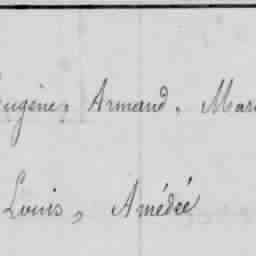 Eugène, Armand, Mar
Louis, Amédée